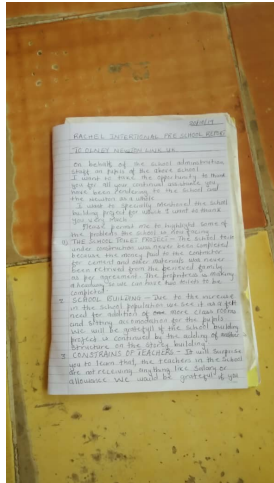 20/5/19
RACHEL INTERNATIONAL PRE SCHOOL REPORT
TO OLNEY NEWTON LINK UK
On behalf of the school administration
staff and pupils of the above school
I want to take the opportunity to thank
you for all your continual assistance you
have been rendering to the school and
the mission as a whole
I want to specially mentioned the school
building project for which I want to thank
you very much
Please permit me to highlight some of
the problems the school is now facing
1) THE SCHOOL TOILET PROJECT - The school toilet
under construction was never been completed
because the money paid to the contractor
for cement and other materials was never
been retrieved from the family
as per agreement. The preparation is making
a heading so we can have two toilets to be
completed
2 SCHOOL BUILDING - Due to the increase
in the school population we see it as a
need for addition of more class rooms
and sitting accommodation for the pupils
We will be grateful if the school building
project is continued by the adding of another
structure on the story building
3 CONSTRAINS OF TEACHERS - It will surprise
you to learn that, the teachers in the school
are not receiving anything like salary or
allowance. We would be grateful if you